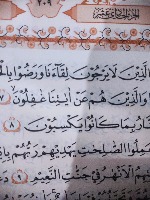 ٢٠٩ الجزء الحادي عشر
ٱلَّذِينَ لَا يَرْجُونَ لِقَآءَنَا وَرَضُوا۟ بِٱلْحَ
وَٱلَّذِينَ هُمْ عَنْ ءَايَٰتِنَا غَٰفِلُونَ ٧
نَّارُ بِمَا كَانُوا۟ يَكْسِبُونَ ٨
عَمِلُوا۟ ٱلصَّٰلِحَٰتِ يَهْدِيهِمْ رَبُّهُم بِإِ
هِمُ ٱلْأَنْهَٰرُ فِى جَنَّٰتِ ٱلنَّعِيمِ ٩